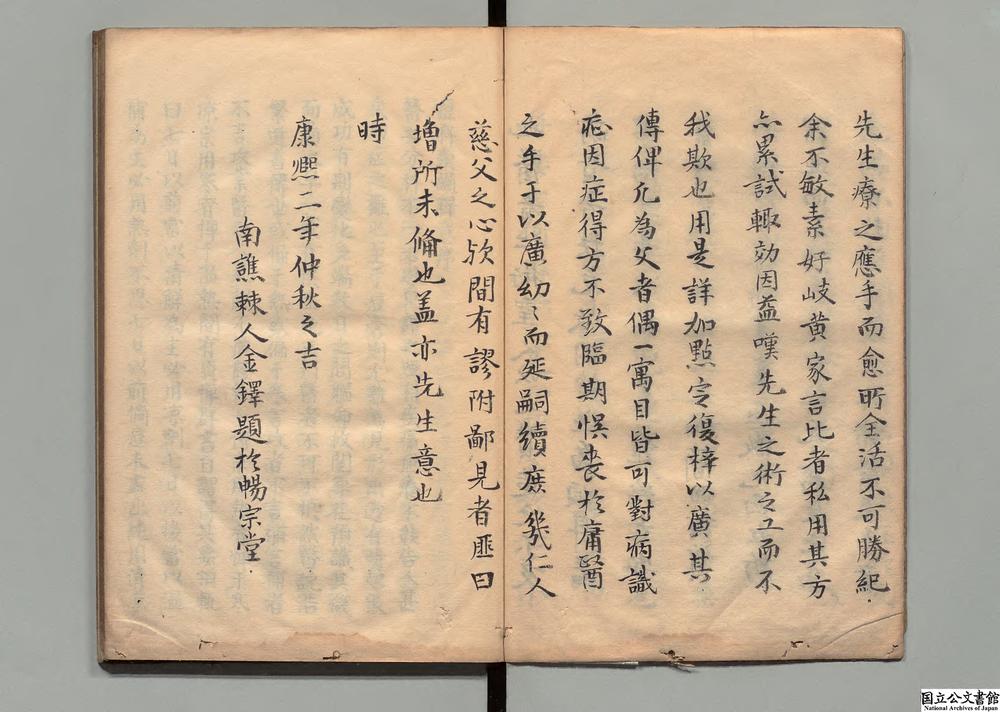 先生療之應手而愈所全活不可勝紀
余不敏素好岐黄家言比者私用其方
亦累試輙効因益嘆先生之術之工而不
我欺也用是詳加點定復梓以廣其
傳俾凢為父者偶一寓目皆可對病識
症因症得方不致臨期悞喪於庸醫
之手于以廣幼〻而延嗣續庶幾仁人
慈父之心欤間有謬附鄙見者匪曰
增所未俻也盖亦先生意也
時
康熈二年仲秋之吉
南譙棘人金鐸題於暢宗堂
国立公文書館
National Archives of Japan